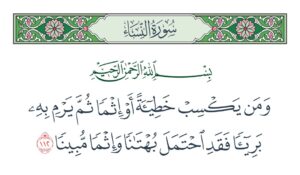 سُورَةُ النِّسَاءِ
بِسْمِ اللَّهِ الرَّحْمَٰنِ الرَّحِيمِ
وَمَن يَكْسِبْ خَطِيٓـَٔةً أَوْ إِثْمًا ثُمَّ يَرْمِ بِهِۦ
بَرِيٓـًٔا فَقَدِ ٱحْتَمَلَ بُهْتَـٰنًا وَإِثْمًا مُّبِينًا ١١٢